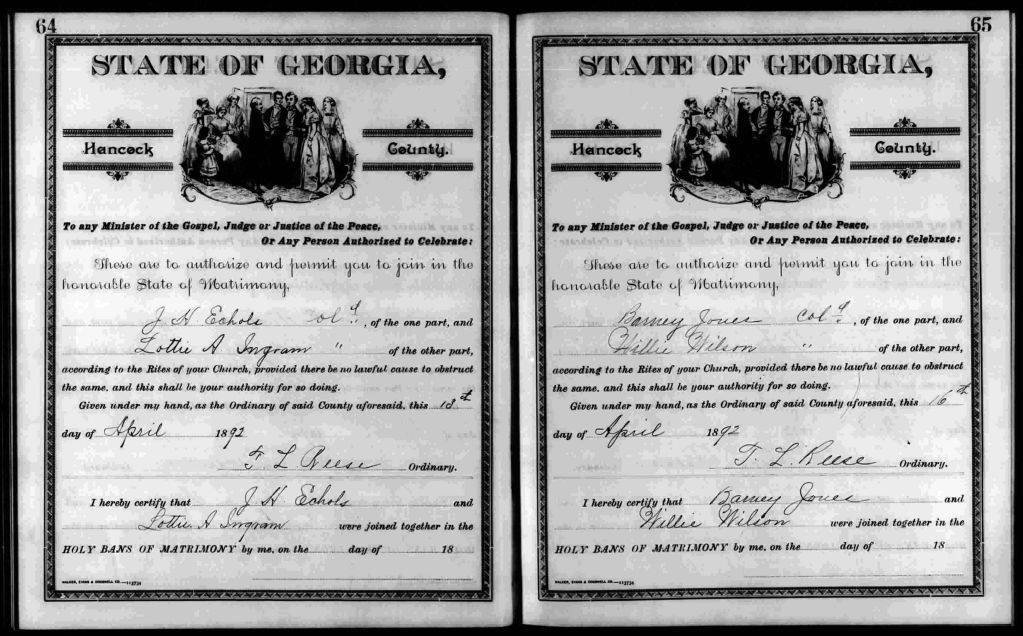 64
STATE OF GEORGIA,
Hancock County.
To any Minister of the Gospel, Judge or Justice of the Peace,
Or Any Person Authorized to Celebrate:
These are to authorize and permit you to join in the
honorable State of Matrimony,
J H Echols Col d. , of the one part, and
Lottie A Ingram " of the other part,
according to the Rites of your Church, provided there be no lawful cause to obstruct
the same, and this shall be your authority for so doing.
Given under my hand, as the Ordinary of said County aforesaid, this 18th
day of April 1892
T. L. Reese Ordinary.
I hereby certify that J H Echols and
Lottie A Ingram were joined together in the
HOLY BANS OF MATRIMONY by me, on the day of 18
WALKER, EVANS & COGSWELL CO.—
65
STATE OF GEORGIA,
Hancock County.
To any Minister of the Gospel, Judge or Justice of the Peace,
Or Any Person Authorized to Celebrate:
These are to authorize and permit you to join in the
honorable State of Matrimony,
Barney Jones Col d. , of the one part, and
Willie Wilson " of the other part,
according to the Rites of your Church, provided there be no lawful cause to obstruct
the same, and this shall be your authority for so doing.
Given under my hand, as the Ordinary of said County aforesaid, this 16th
day of April 1892
T. L. Reese Ordinary.
I hereby certify that Barney Jones and
Willie Wilson were joined together in the
HOLY BANS OF MATRIMONY by me, on the day of 18
WALKER, EVANS & COGSWELL CO.—